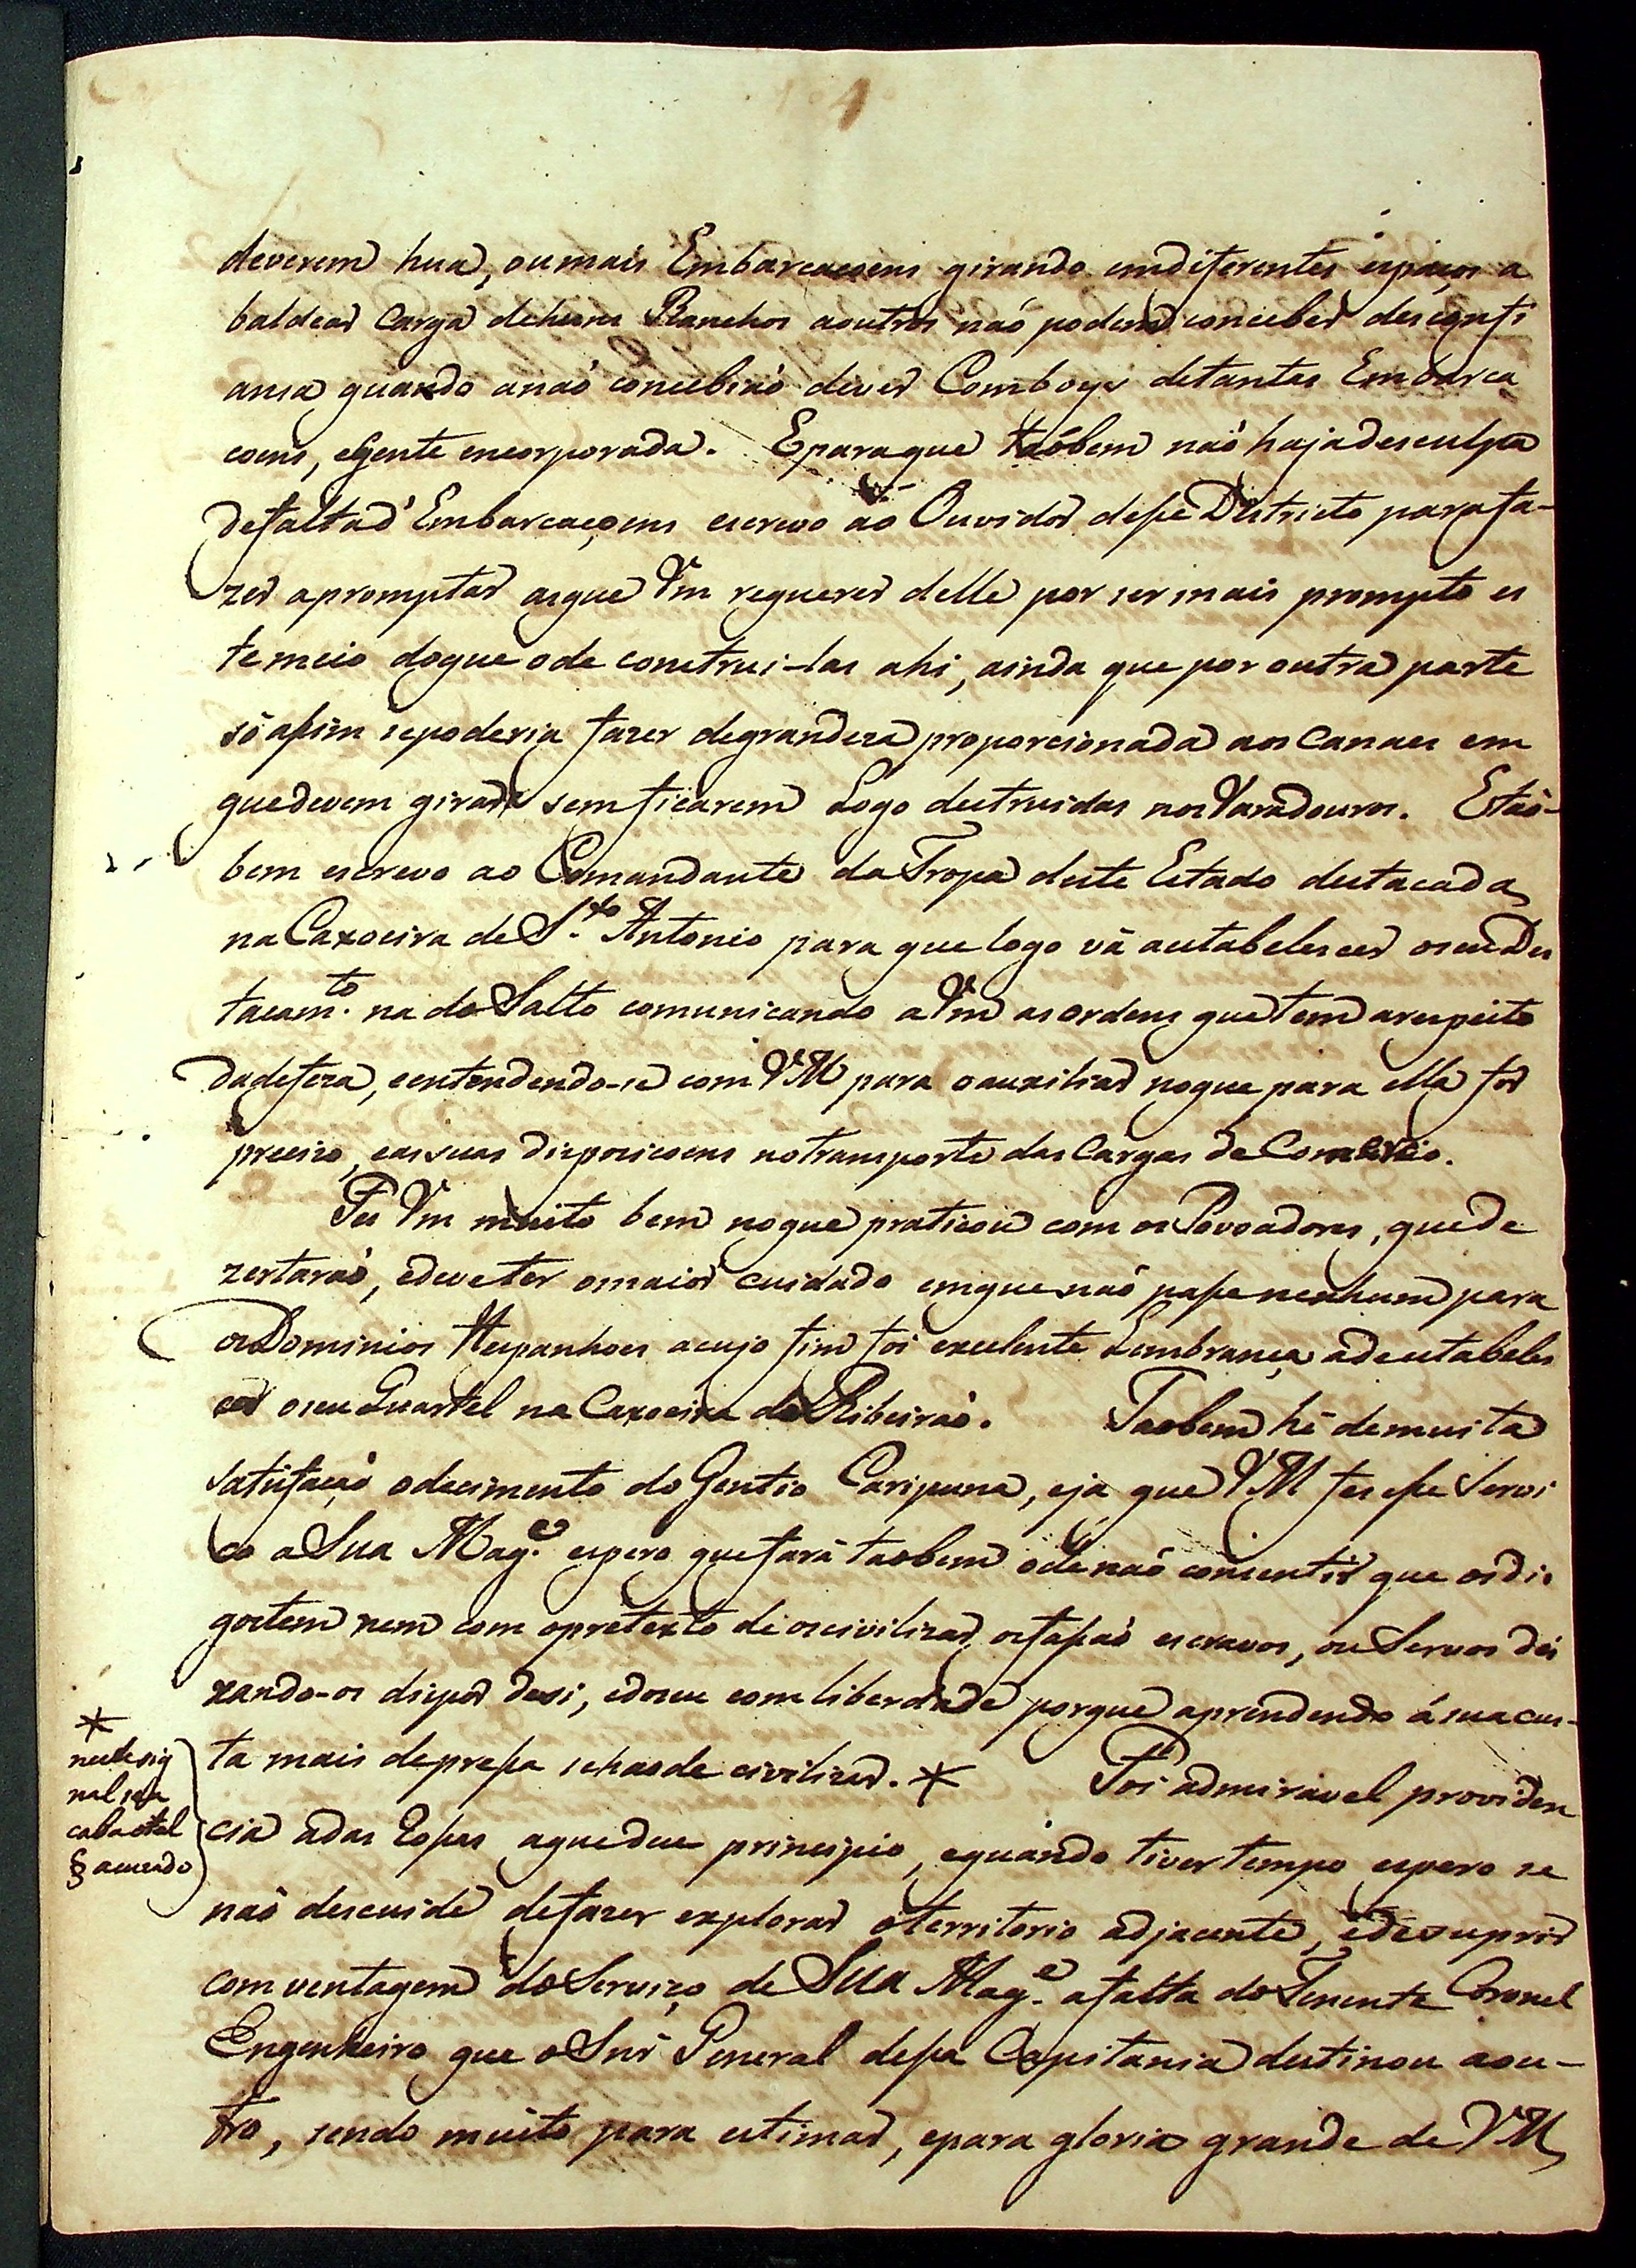 4
deverem hua, ou mais Embarcacoens girando em diferentes espaços a
baldear Carga de huns Ranchos a outros não podem conceber desconfi
ansa quando anaó concebiraó de ver Comboys de tantas Embarca
coens, e Gente encorporada. E para que taóbem naó haja desculpa
de falta d'Embarcaçoens escrevo aó Ouvidor desse Districto para fa-
zer apromptar as que Vm requerer delle por ser mais prompto es
te meio do que o de construi-las ahi, ainda que por outra parte
só assim se poderia fazer de grandeza proporcionada aos Canaes em
que devem girar sem ficarem Logo destruidas nos Varadouros. E taó-
bem escrevo ao Comandante da Tropa deste Estado destacada
na Caxoeira de S.to Antonio para que logo vá a estabelescer o seu Des
tacam.to na do Salto comunicando a Vm as ordens que tem a respeito
da defeza, e entendendo-se com VM para o auxiliar no que para ella for
preciso, e as suas disposicoens no transporte das Cargas de Comercio.
Fes Vm muito bem no que praticou com os Povoadores, que de
zertaraó, e deve ter o maior cuidado em que naó passe nenhum para
os Dominios Hespanhoes a cujo fim foi excelente Lembrança a de estabeles
cer o seu Quartel na Caxoeira do Ribeiraó. Taobem hé de muita
satisfaçaó o decimento do Gentio Caripuna, e ja que VM fes esse Servi
co a Sua Mag.e espero que fará taobem o de naó consentir que os di
gostem nem com o pretexto de os civilizar, os fassaó escravos, ou Servos dei
xando-os dispor de si, e do seu com liberdade porque aprendendo á sua cus-
ta mais depressa se haode civilizar. * Foi admiravel providen
*
neste sig
nal se a
caba o tal
§ acuzado
cia a das Rossas a que deu principio, e quando tiver tempo espero se
naó descuide de fazer explorar o territorio adjacente, e de suprir
com ventagem do Serviço de Sua Mag.e a falta do Tenente Coronel
Engenheiro que o Snr General dessa Capitania destinou a ou-
tro, sendo muito para estimar, e para gloria grande de VM